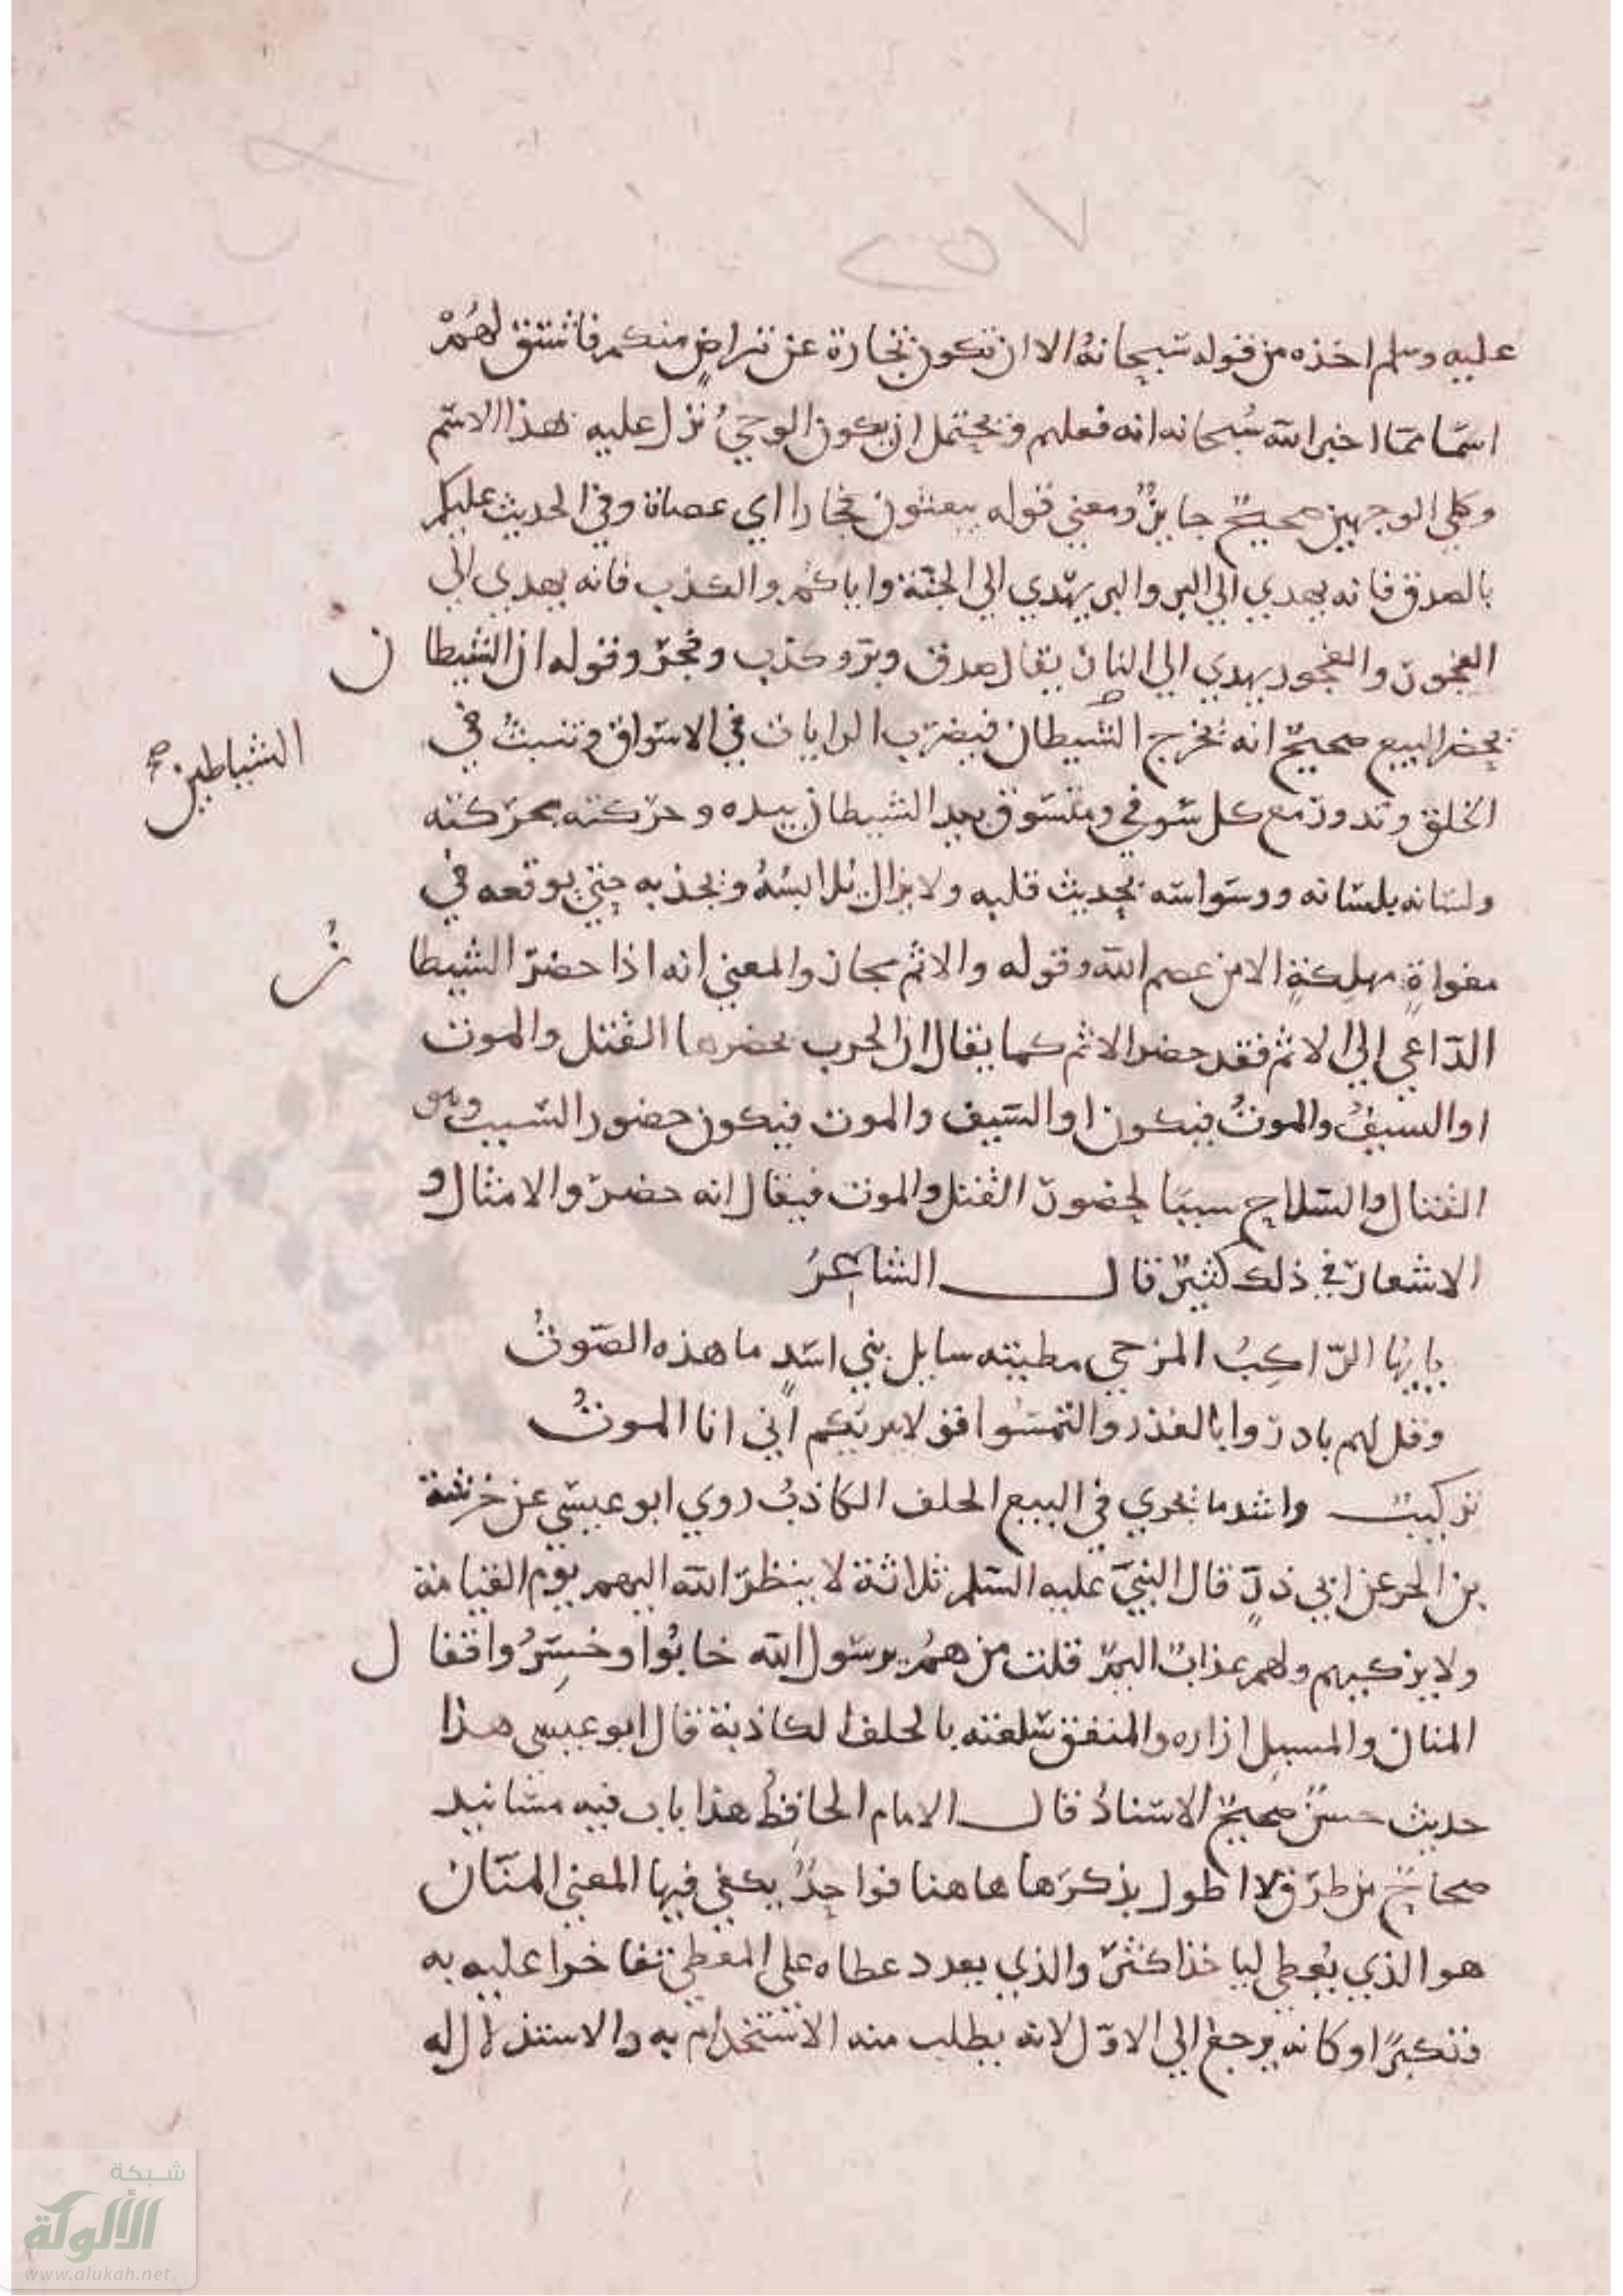 ٢٥٧
عليه وسلم اخذه من قوله سبحانه الا ان تكون تجارة عن تراض منكم فاشتق لهم
اسما مما اخبر الله سبحانه انه فعلهم ويحتمل ان يكون الوحي نزل عليه هذا الاسم
وكلي الوجهين صحيح جايز ومعني قوله يبعثون فجارا اي عصاة وفي الحديث عليكم
بالصدق فانه يهدي الي البر والبر يهدي الي الجنة واياكم والكذب فانه يهدي الي
الفجور والفجور يهدي الي النار يقال صدق وبر وكذب وفجر وقوله ان الشيطان
يحضر البيع صحيح انه تخرج الشيطان فيضرب الرايات في الاسواق وتنبث في
الشياطين صح
الخلق وتدور مع كل سوقي ومتسوق يد الشيطان بيده وحركته بحركته
ولسانه بلسانه ووسواسه بحديث قلبه ولا يزال يلابسه ويجذبه حتي يوقعه في
مغواة مهلكة الا من عصم الله وقوله والاثم مجاز والمعني انه اذا حضر الشيطان
الداعي الي الاثم فقد حضر الاثم كما يقال ان الحرب يحضرها القتل والموت
او السيف والموت فيكون او السيف والموت فيكون حضور السبب وهو
القتال والسلاح سببا لحضور القتل والموت فيقال انه حضر والامثال و
الاشعار في ذلك كثير قال الشاعر
يايها الراكب المزجي مطيته سايل بني اسد ما هذه الصوت
وقل لهم بادروا بالعذر والتمسوا قولا يبريكم اني انا الموت
تركيب واشد ما يجري في البيع الحلف الكاذب روي ابو عيسي عن خرشة
بن الحر عن ابي ذر قال النبي عليه السلم ثلاثة لا ينظر الله اليهم يوم القيامة
ولا يزكيهم ولهم عذاب اليم قلت من هم يرسول الله خابوا وخسروا فقال
المنان والمسبل ازاره والمنفق سلعته بالحلف الكاذبة قال ابو عيسي هذا
حديث حسن صحيح الاسناد قال الامام الحافظ هذا باب فيه مسانيد
صحايح من طرق لا اطول بذكرها هاهنا فواحد يكفي فيها المعني المنان
هو الذي يعطي لياخذ اكثر والذي يعدد عطاه علي المعطي تفاخرا عليه به
وتكبرا وكانه يرجع الي الاول لانه يطلب منه الاستخدام به والاستذلال له
شبكة
الألوكة
www.alukah.net